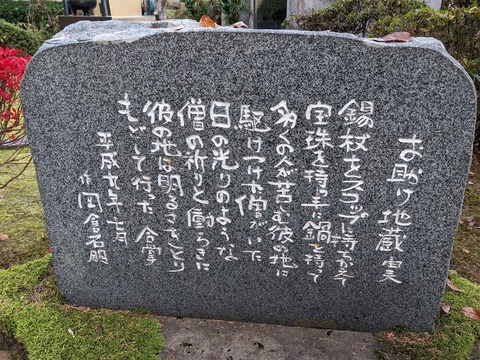 お助け地蔵由来
錫杖をスコップに持ちかえて
宝珠を持つ手に鍋を持って
多くの人が苦む彼の地に
駆けつけた僧がいた
日の光りのような
僧の祈りと働らきに
彼の地は明るさをとり
もどして行った 合掌
平成九年七月
作 岡倉